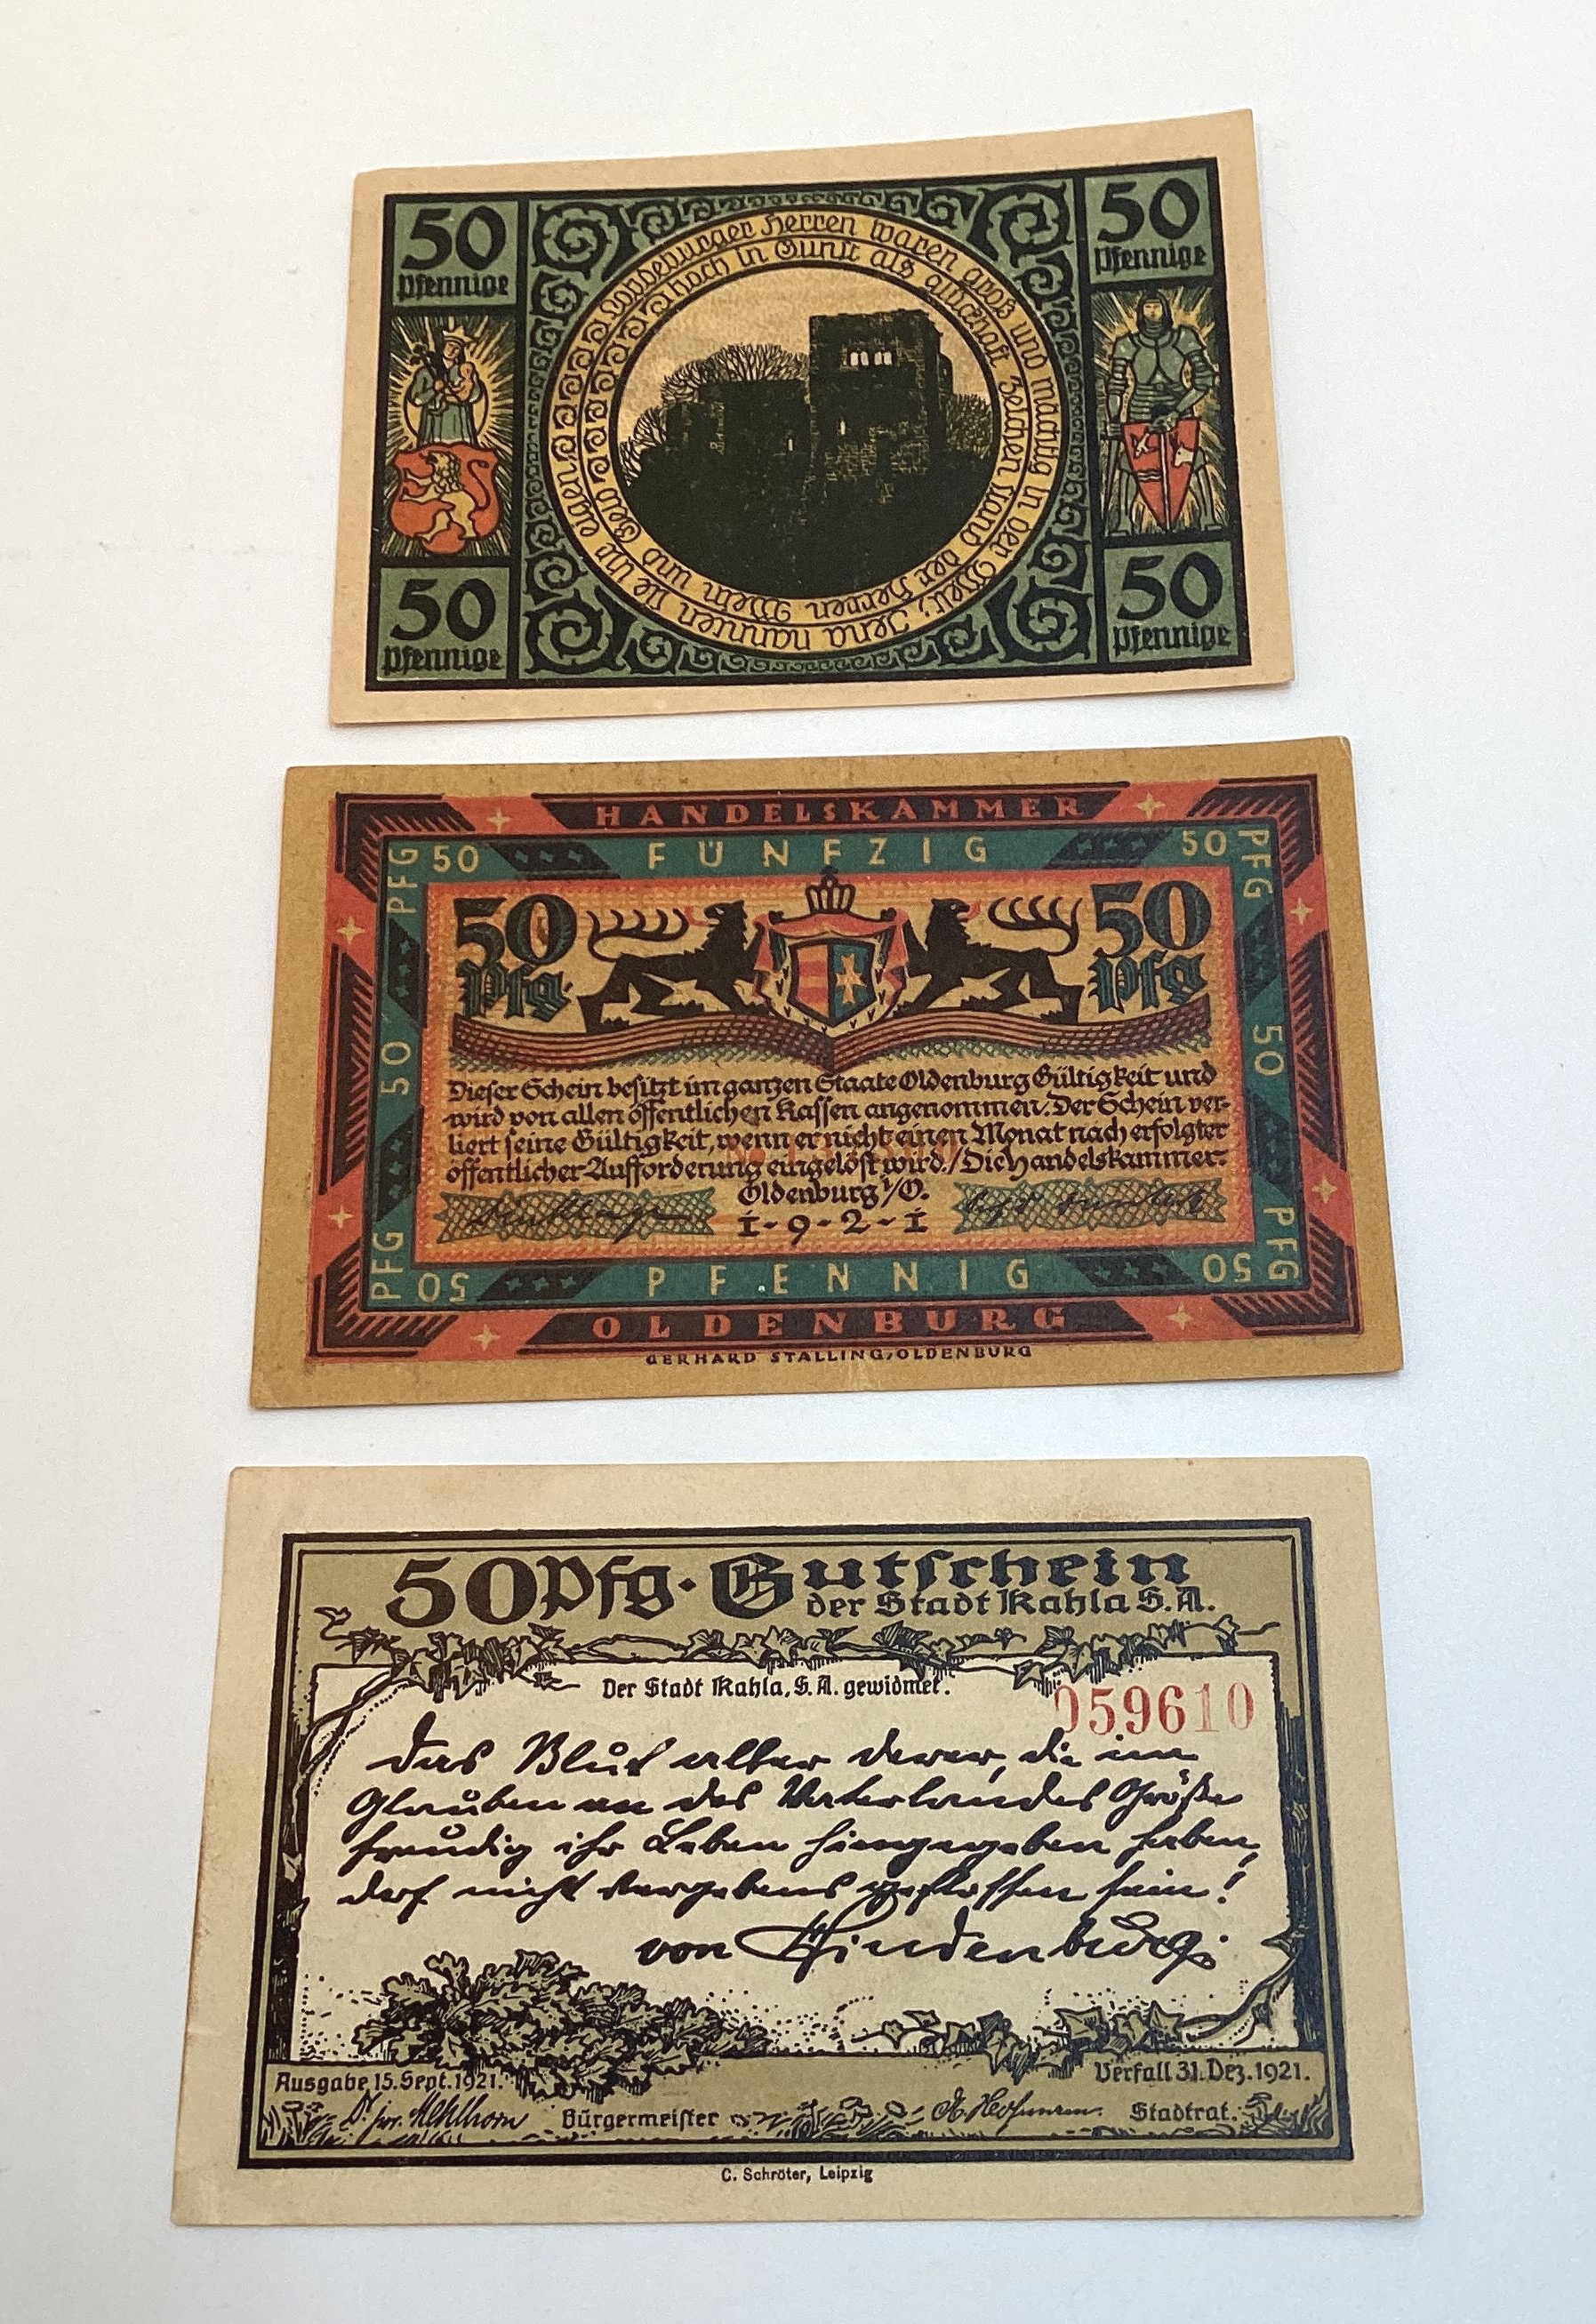 50
Pfennige
50
Pfennige
Lobdeburger Herren waren groß und mächtig in der Welt; Jena nannten sie ihr eigen
hoch in Gunst als Zeichen stand der Herren Wein und Geld
50
Pfennige
50
Pfennige
HANDELSKAMMER
PFG 50 FÜNFZIG 50 PFG
50 Pfg. 50 Pfg
50 50
Dieser Schein besitzt im ganzen Staate Oldenburg Gültigkeit und
wird von allen öffentlichen Kassen angenommen. Der Schein ver-
liert seine Gültigkeit, wenn er nicht einen Monat nach erfolgter
öffentlicher Aufforderung eingelöst wird. / Die Handelskammer.
Oldenburg i/O.
1-9-2-1
PFG 50 PFENNIG 50 PFG
OLDENBURG
GERHARD STALLING, OLDENBURG
50 Pfg. Gutschein
der Stadt Kahla S. A.
Der Stadt Kahla, S. A. gewidmet.
059610
Das Blut aller derer, die im
Glauben an des Vaterlandes Größe
freudig ihr Leben hingegeben haben,
darf nicht vergebens geflossen sein!
von Hindenburg.
Ausgabe 15. Sept. 1921. Verfall 31. Dez. 1921.
Bürgermeister Stadtrat.
C. Schröter, Leipzig